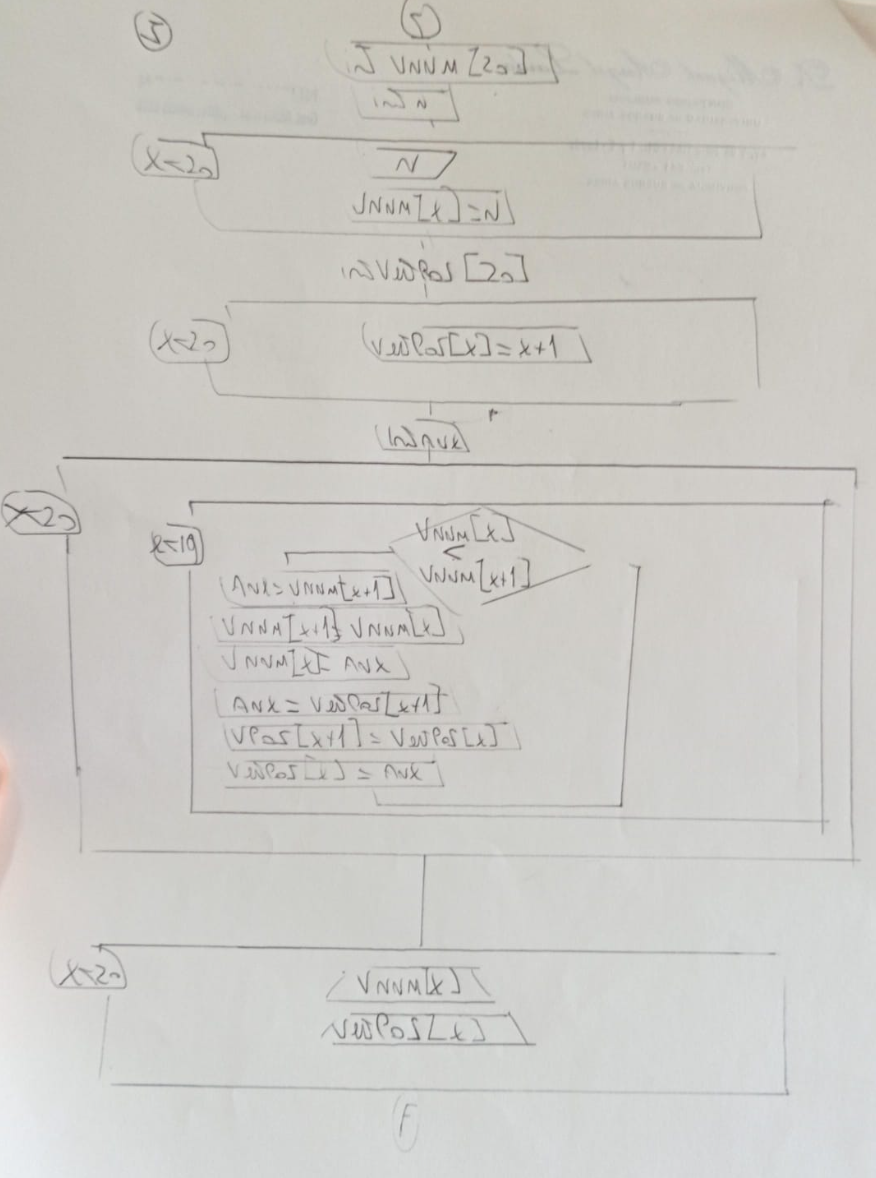 5
I
int VNUM[20]
int N
x<20
N
VNUM[x]=N
int VecPos[20]
x<20
VecPos[x]=x+1
int aux
x<20
x<19
VNUM[x]
<
VNUM[x+1]
AUX=VNUM[x+1]
VNUM[x+1]=VNUM[x]
VNUM[x]=AUX
AUX=VecPos[x+1]
VPos[x+1]=VecPos[x]
VecPos[x]=AUX
x<20
VNUM[x]
VecPos[x]
F